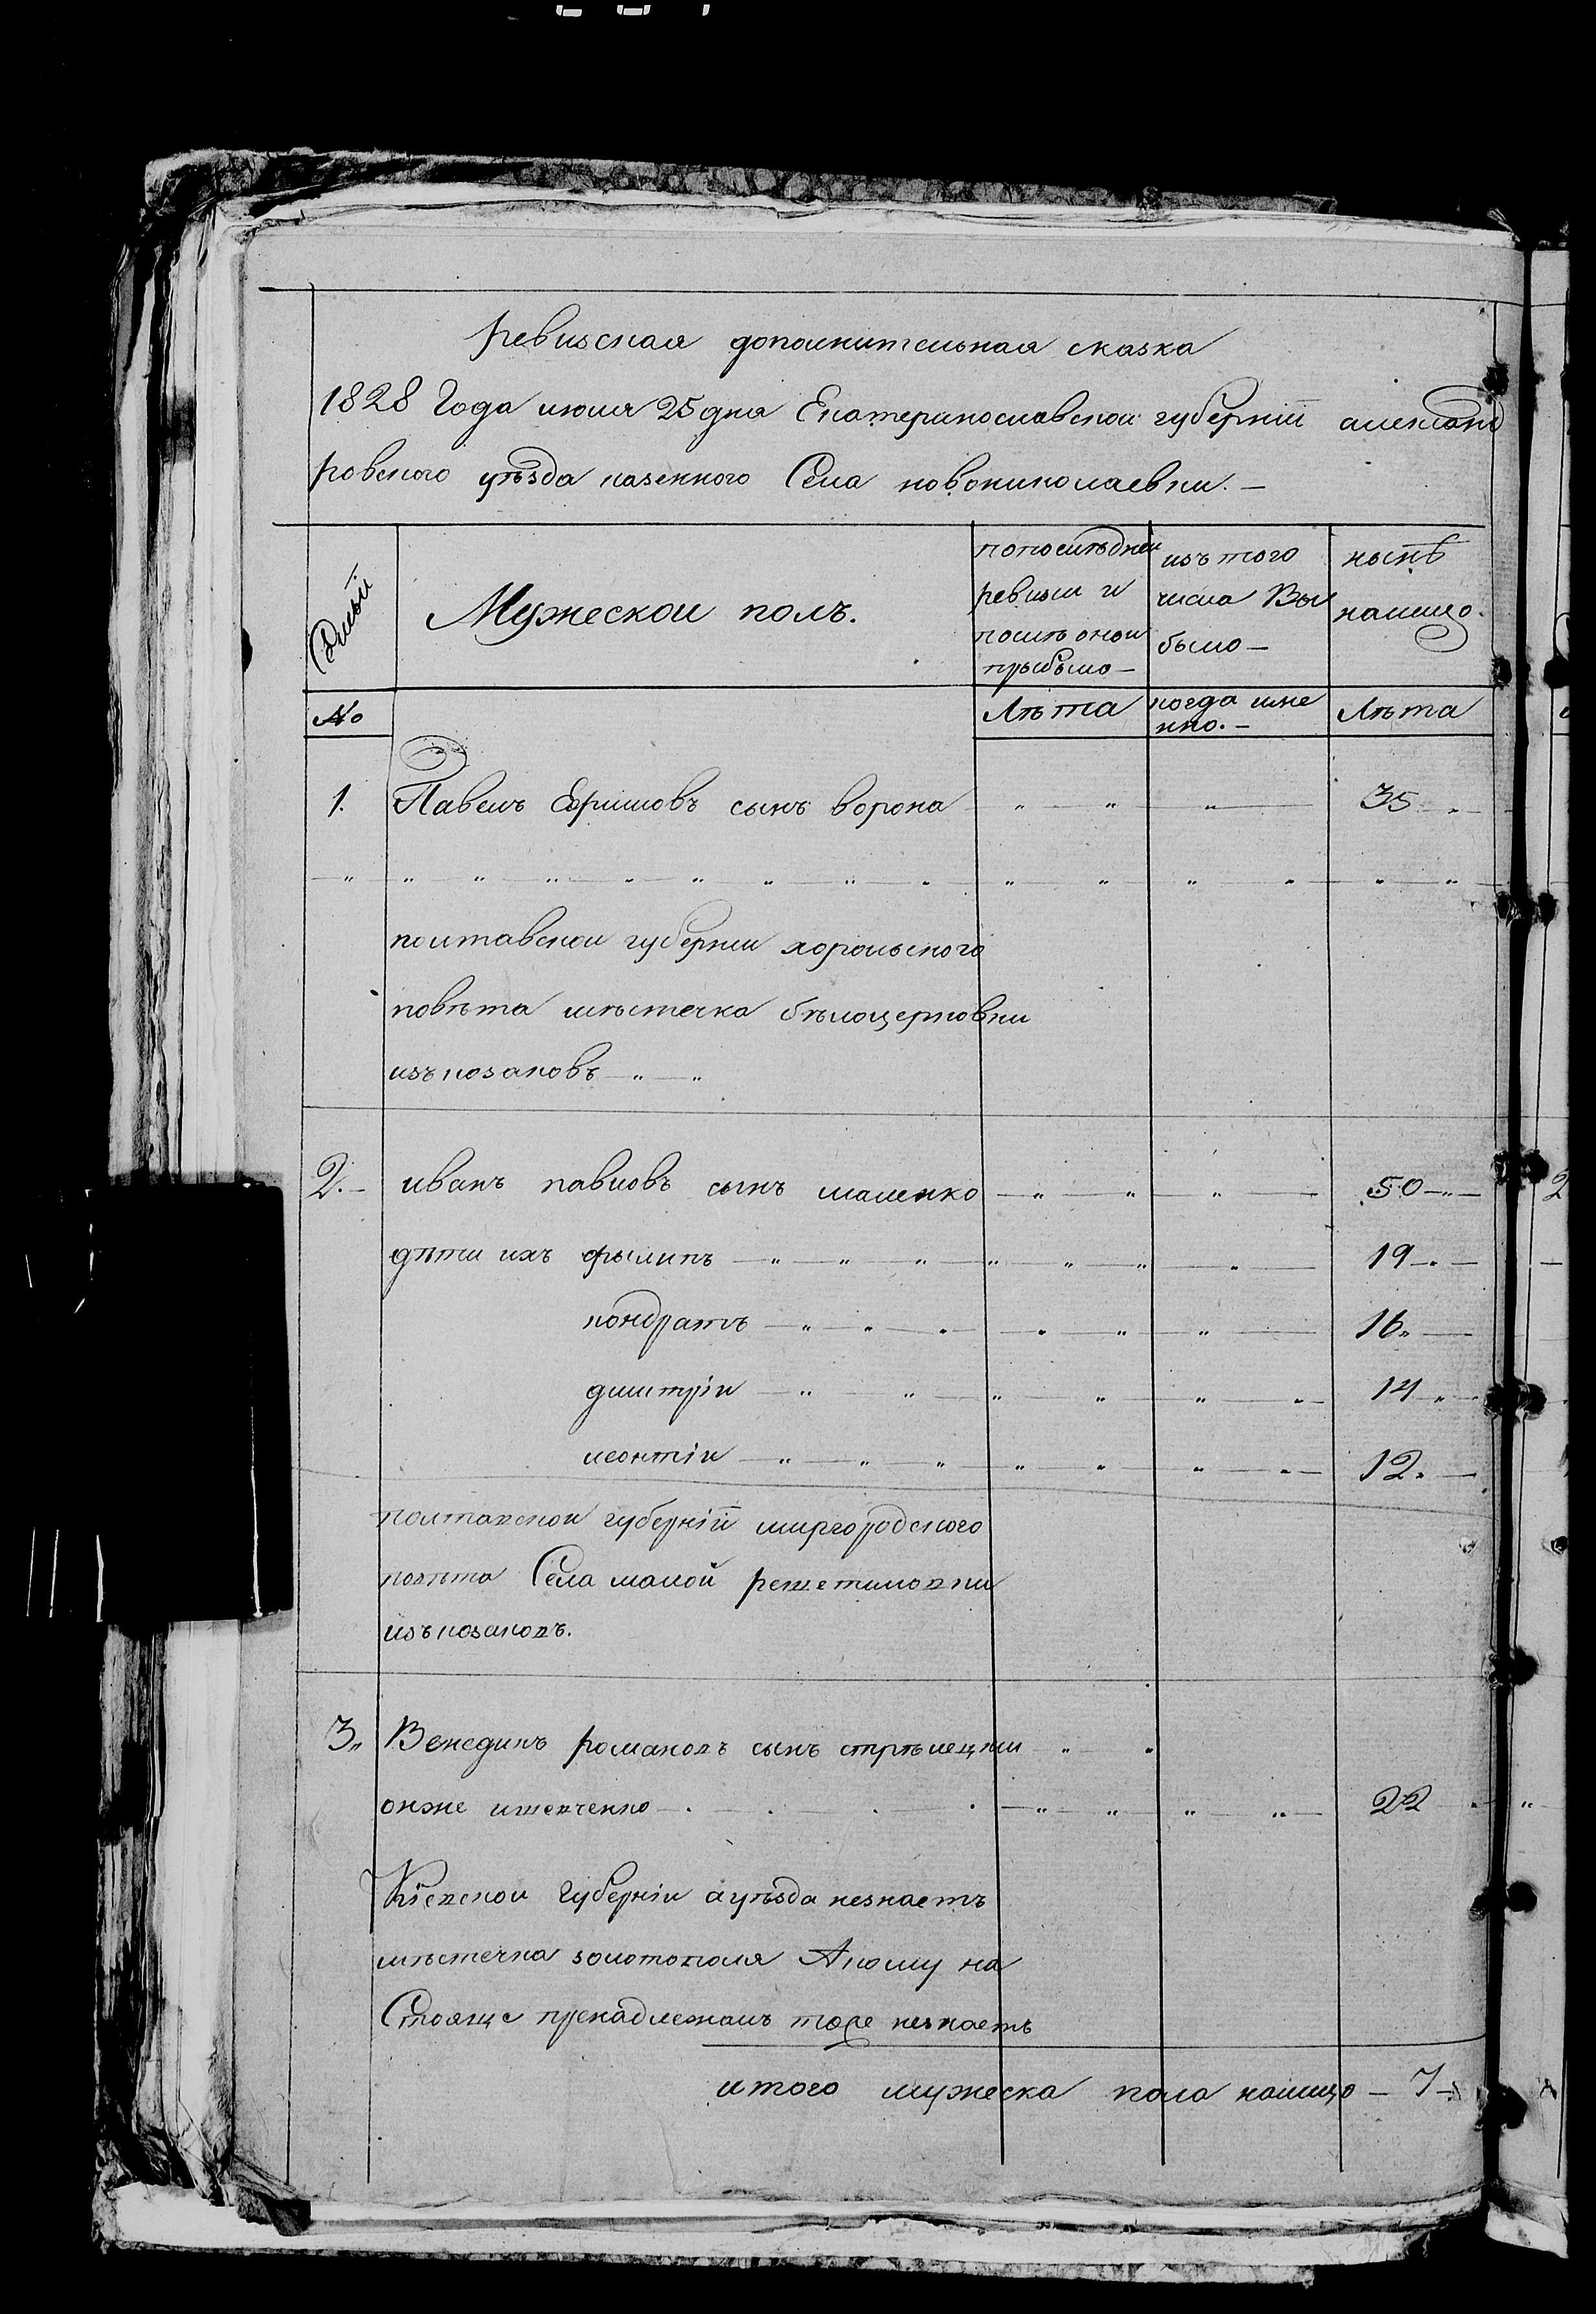 ревизская дополнительная сказка
1828 Года июля 25 дня Екатеринославской губернїи александ
ровского уѣзда казенного Села новониколаевки. —
Мужескои полъ.
попослѣдней ревизии и послѣ онои прыбыло —
изъ того числа Вы было —
нынѣ налицо.
№
Лѣта
когда име нно. —
Лѣта
1. Павелъ Ефримовъ сынъ ворона 35
полтавскои губернии хорольского
повѣта мѣстечка бѣлоцерковки
изъ козаковъ
2. иванъ павловъ сынъ маленко 50
дѣти ихъ фылипъ 19
кондратъ 16
дмитрїи 14
леонтїи 12
полтавскои губернїи миргородского
повѣта Села малой решетиловки
изъ козаковъ.
3. Венедикъ романовъ сынъ стрѣлецкии
онже ишевченко 22
Кїевскои Губернїи ауѣзда незнаетъ
мѣстечка золотополя Акому на
Стояще пренадлежалъ тоже незнаетъ
итого мужеска пола налицо — 7